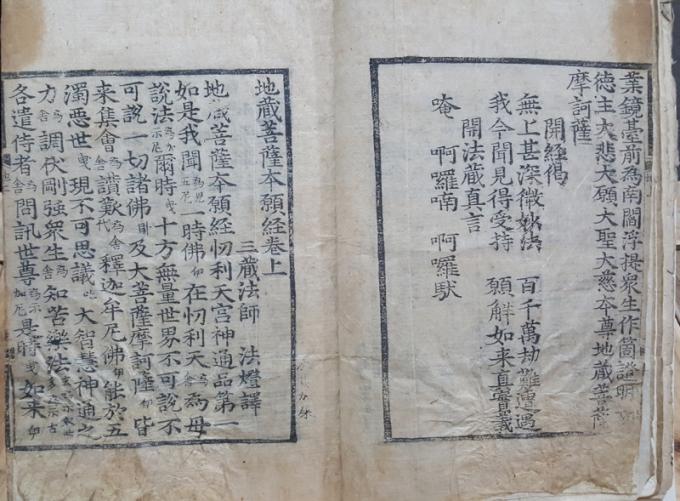 業鏡臺前爲南閻浮提衆生作箇證明
德主大悲大願大聖大慈本尊地藏菩薩
摩訶薩
開經偈
無上甚深微妙法 百千萬劫難遭遇
我今聞見得受持 願解如来真實義
開法藏真言
唵 啊羅喃 啊羅馱
地藏菩薩本願經卷上
三藏法師 法燈譯
地藏菩薩本願經忉利天宮神通品第一
如是我聞 一時佛 在忉利天 爲母
說法 爾時 十方無量世界不可說不
可說一切諸佛 及大菩薩摩訶薩 皆
来集會 讃歎 釋迦牟尼佛 能於五
濁惡世 現不可思議 大智慧神通之
力 調伏剛強衆生 知苦樂法
各遣侍者 問訊世尊 是時 如来